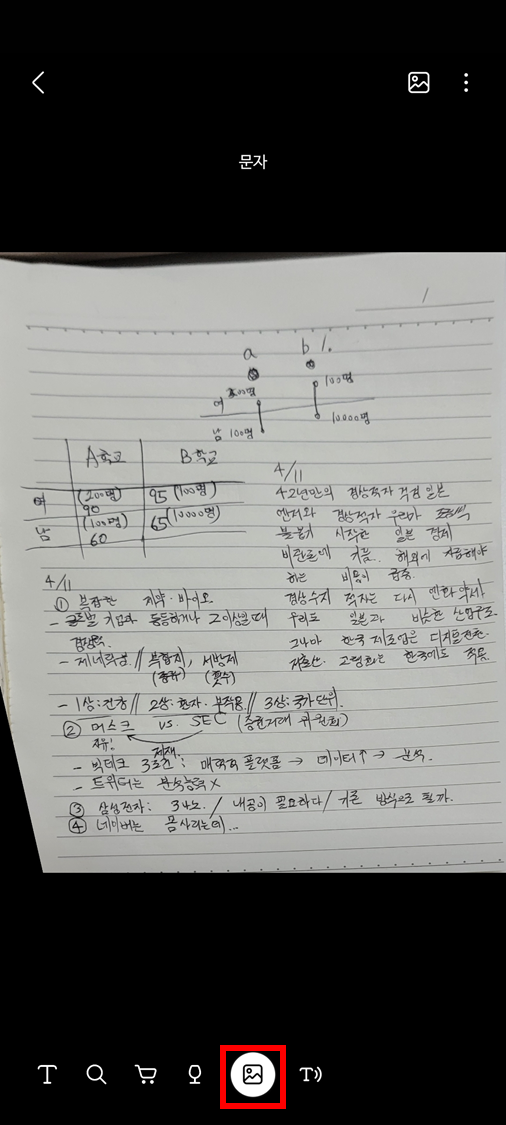 문자
a b %.
여 200명 100명
남 100명 10000명
A학교 B학교
여 (200명) 90 95 (100명)
남 (100명) 60 65 (10000명)
4/11
42년만의 경상적자 걱정 일본
엔저와 경상적자 우려가
불붙기 시작한 일본 경제
비관론에 기름. 해외에 지급해야
하는 비용이 급증.
경상수지 적자는 다시 엔화약세
우리도 일본과 비슷한 산업구조.
그나마 한국 제조업은 디지털전환.
저출산. 고령화는 한국에도 적용
4/11
① 복잡한 제약·바이오
- 글로벌 기업과 동등하거나 그 이상일 때
경쟁력.
- 제네릭성 // 복합제, 서방제
(종류) (횟수)
- 1상: 건강 // 2상: 환자·부작용 // 3상: 국가단위.
② 머스크 vs. SEC (증권거래 위원회)
자유! 제재.
- 빅테크 3조건: 매력적 플랫폼 → 데이터↑ → 분석.
- 트위터는 분석능력 X
③ 삼성전자: 3나노. / 내공이 필요하다 / 기존 방식으로 될까.
④ 네이버는 몸사리는데...
T T